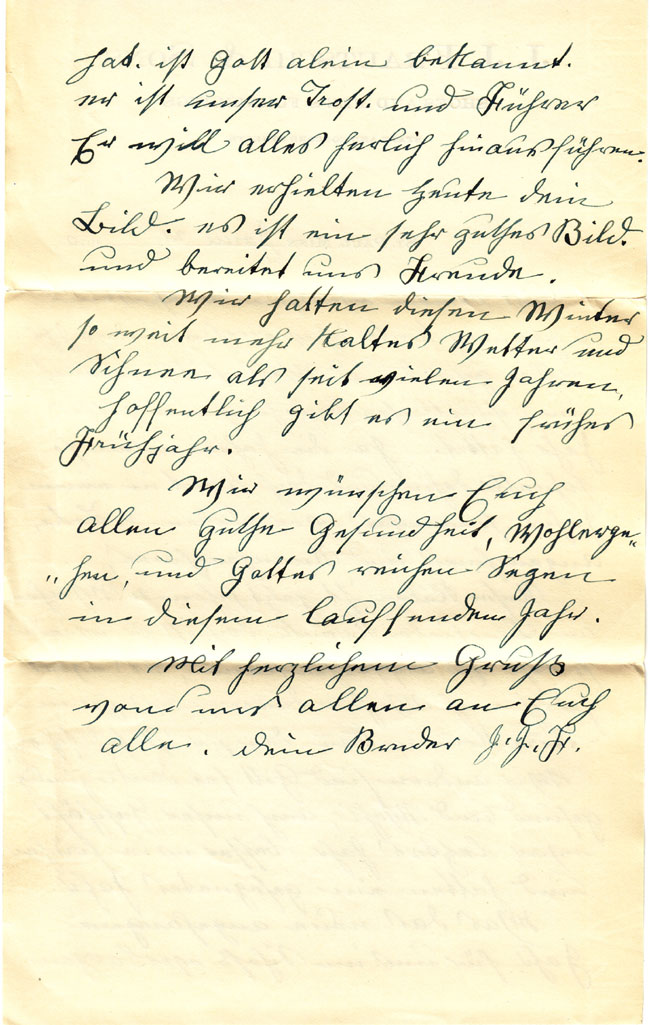 hat. ist Gott alein bekannt.
er ist unser Trost. und Führer
Er will alles herlich hinausführen.
Wir erhielten heute dein
Bild. es ist ein sehr guthes Bild.
und bereitet uns Freude.
Wir hatten diesen Winter
so weit mehr Kaltes Wetter und
Schnee als seit vielen Jahren,
hoffentlich gibt es ein frühes
Frühjahr.
Wir wünschen Euch
allen guthe Gesundheit, Wohlerge„
„hen, und Gottes reichen Segen
in diesem lauffenden Jahr.
Mit herzlichem Gruß
von uns allen an Euch
alle. dein Bruder J. J. Fr.